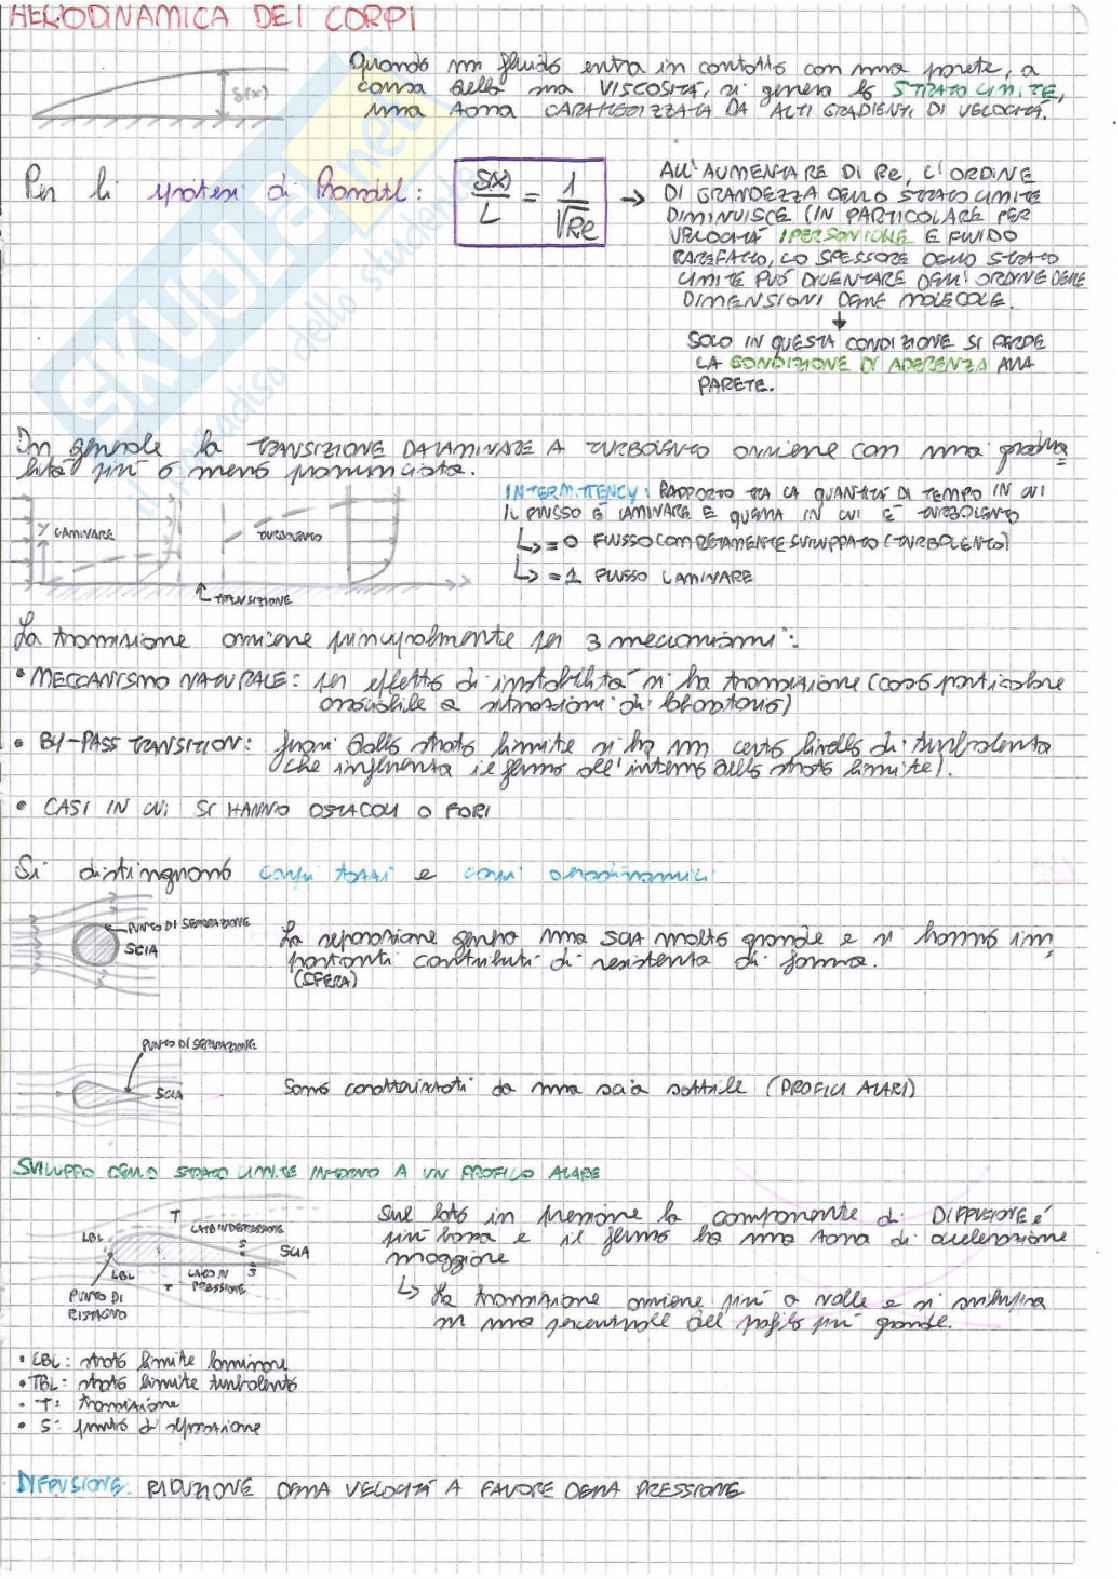 AERODINAMICA DEI CORPI
Quando un fluido entra in contatto con una parete, a
causa della sua VISCOSITÀ, si genera lo STRATO LIMITE,
una zona CARATTERIZZATA DA ALTI GRADIENTI DI VELOCITÀ.
δ(x)
Per le ipotesi di Prandtl: δ(x)/L = 1/√Re →
ALL'AUMENTARE DI Re, L'ORDINE
DI GRANDEZZA DELLO STRATO LIMITE
DIMINUISCE (IN PARTICOLARE PER
VELOCITÀ IPERSONICHE E FLUIDO
RAREFATTO, LO SPESSORE DELLO STRATO
LIMITE PUÒ DIVENTARE DELL'ORDINE DELLE
DIMENSIONI DELLE MOLECOLE.
↓
SOLO IN QUESTA CONDIZIONE SI PERDE
LA CONDIZIONE DI ADERENZA ALLA
PARETE.
In generale la TRANSIZIONE DA LAMINARE A TURBOLENTO avviene con una gradua
lità più o meno pronunciata.
INTERMITTENCY: RAPPORTO TRA LA QUANTITÀ DI TEMPO IN CUI
IL FLUSSO È LAMINARE E QUELLA IN CUI È TURBOLENTO
↳ = 0 FLUSSO COMPLETAMENTE SVILUPPATO (TURBOLENTO)
↳ = 1 FLUSSO LAMINARE
LAMINARE
TURBOLENTO
TRANSIZIONE
La transizione avviene principalmente per 3 meccanismi:
• MECCANISMO NATURALE: per effetto di instabilità si ha transizione (caso particolare
associabile a situazioni di laboratorio)
• BY-PASS TRANSITION: fuori dallo strato limite si ha un certo livello di turbolenza
che influenza il flusso all'interno dello strato limite).
• CASI IN CUI SI HANNO OSTACOLI O FORI
Si distinguono corpi tozzi e corpi aerodinamici
PUNTO DI SEPARAZIONE
SCIA
La separazione genera una SCIA molto grande e si hanno im
portanti contributi di resistenza di forma.
(SFERA)
PUNTO DI SEPARAZIONE
SCIA
Sono caratterizzati da una scia sottile (PROFILI ALARI)
SVILUPPO DELLO STRATO LIMITE INTORNO A UN PROFILO ALARE
T
LATO IN DEPRESSIONE
LBL
S
SCIA
LBL
LATO IN
PRESSIONE
S
T
PUNTO DI
RISTAGNO
Sul lato in pressione la componente di DIFFUSIONE è
più bassa e il flusso ha una zona di accelerazione
maggiore
↳ La transizione avviene più a valle e si sviluppa
su una percentuale del profilo più grande.
• LBL: strato limite laminare
• TBL: strato limite turbolento
• T: transizione
• S: punto di separazione
DIFFUSIONE: RIDUZIONE DELLA VELOCITÀ A FAVORE DELLA PRESSIONE
SKUOLA.net
il paradiso dello studente